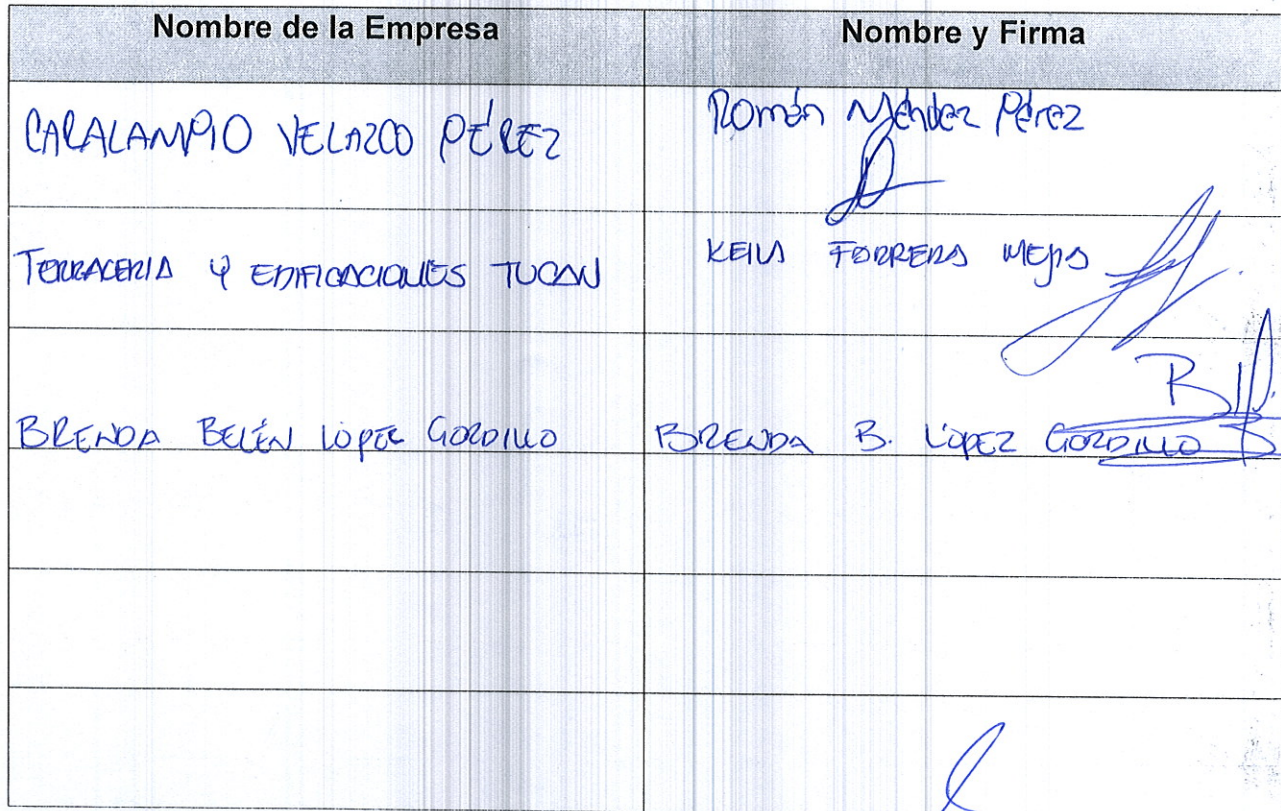 Nombre de la Empresa Nombre y Firma
CARALAMPIO VELAZCO PÉREZ Román Méndez Pérez
TERRACERIA Y EDIFICACIONES TUCAN KEILA FORRERA MEJIA
BRENDA BELÉN LÓPEZ GORDILLO BRENDA B. LÓPEZ GORDILLO